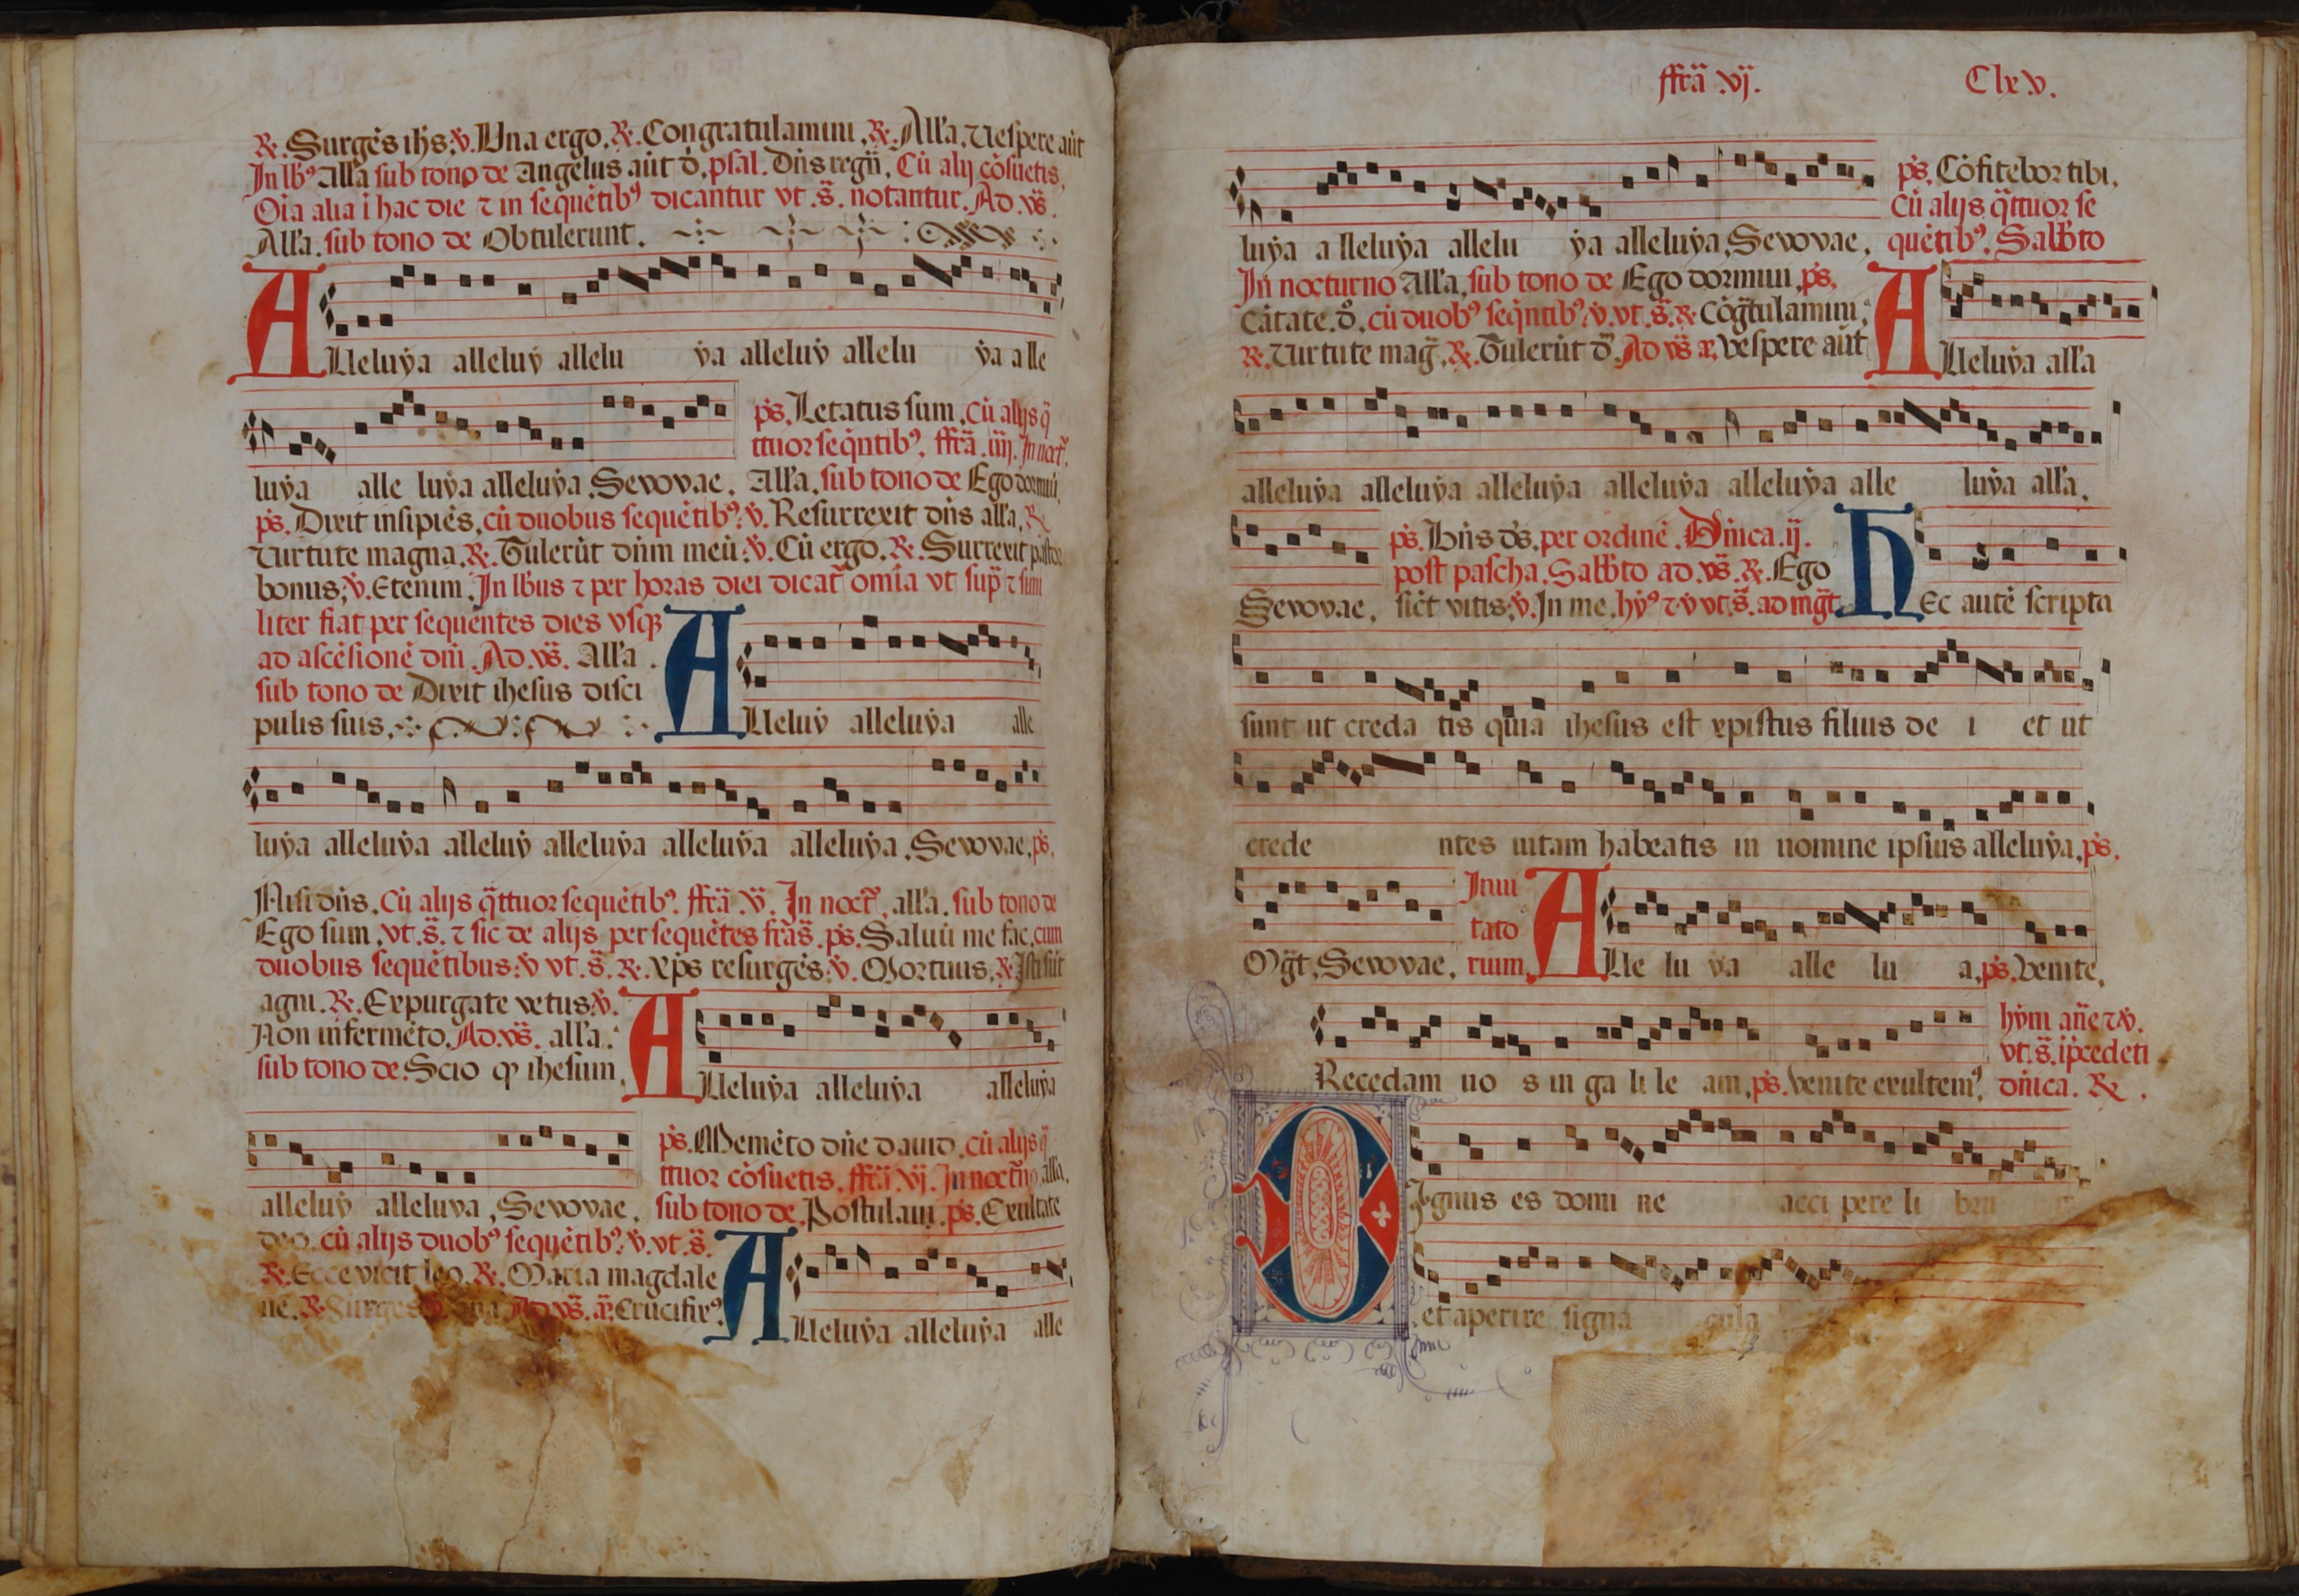 ℟. Surgẽs ihs; ℣. Una ergo. ℟. Congratulamini. ℟. Alla. Vespere aũt
In lb⁹ alla sub tono de Angelus aũt d. psal. Dñs regñ. Cũ alij cõsuetis.
Oĩa alia ĩ hac die ⁊ in sequẽtib⁹ dicantur vt .s̃. notantur. Ad .vs̃.
Alla. sub tono de Obtulerunt.
Alleluya alleluy allelu ya alleluy allelu ya alle
ps. Letatus sum. cũ alijs q̃
ttuor seqũtib⁹. ffrã .iiij. In noct̃.
luya alle luya alleluya. Sevovae. Alla. sub tono de Ego dormiui.
ps. Dixit insipiẽs. cũ duobus sequẽtib⁹. ℣. Resurrexit dñs alla. ℟.
Virtute magna. ℟. Tulerũt dñm meũ. ℣. Cũ ergo. ℟. Surrexit pastor
bonus; ℣. Etenim. In lbus ⁊ per horas diei dicat̃ omĩa vt sup̃ ⁊ simi
liter fiat per sequentes dies vsq̃
ad ascẽsionẽ dñi. Ad .vs̃. Alla.
sub tono de Dixit ihesus disci
pulis suis.
Alleluy alleluya alle
luya alleluya alleluy alleluya alleluya alleluya. Sevovae. ps.
Nisi dñs. Cũ alijs q̃ttuor sequẽtib⁹. ffrã .v̈. In noct̃. alla. sub tono de
Ego sum. vt .s̃. ⁊ sic de alijs per sequẽtes frãs. ps. Saluũ me fac. cum
duobus sequẽtibus: ℣ vt .s̃. ℟. xp̃s resurgẽs; ℣. Mortuus. ℟. Isti sũt
agni. ℟. Expurgate vetus: ℣.
Non in fermẽto. Ad .vs̃. alla.
sub tono de. Scio q̃ ihesum.
Alleluya alleluya alleluya
ps. Memẽto dñe dauid. cũ alijs q̃
ttuor cõsuetis. ffrã .vj. In noct̃no. alla.
alleluy alleluya. Sevovae. sub tono de. Postulaui. ps. Exultate
deo. cũ alijs duob⁹ sequẽtib⁹. ℣. vt .s̃.
℟. Ecce vicit leo. ℟. Maria magdale
nẽ. ℟. Surges Ad .vs̃. añ. Crucifix⁹.
Alleluya alleluya alle
ffrã .vj. Clxv.
ps. Cõfitebor tibi.
Cũ alijs q̃ttuor se
luya alleluya allelu ya alleluya. Sevovae. quẽtib⁹. Sabbto
In nocturno Alla. sub tono de Ego dormiui. ps.
Cãtate. d̃. cũ duob⁹ seqñtib⁹. ℣. vt .s̃. ℟. Cõg̃tulamini.
℟. Virtute mag̃. ℟. Tulerũt d̃. Ad vs̃ añ. Vespere aũt
Alleluya alla
alleluya alleluya alleluya alleluya alleluya alle luya alla.
ps. Bñs ds. per ordinẽ. Dñica .ij.
post pascha. Sabbto ad .vs̃. ℟. Ego
Sevovae. sicut vitis; ℣. In me. hy⁹ ⁊ ℣ vt .s̃. ad mg̃t
Hec autẽ scripta
sunt ut creda tis quia ihesus est xpistus filius de i et ut
crede ntes uitam habeatis in nomine ipsius alleluya. ps.
Inui
tato
Mg̃t. Sevovae. rium.
Alle lu ya alle lu a. ps. Venite.
hym añe ⁊ ℣.
vt .s̃. ĩ p̃cedeti
Recedam uo s in ga li le am. ps. Venite exultem⁹. dñica. ℟.
Dignus es domi ne acci pere li
et aperire signa cula